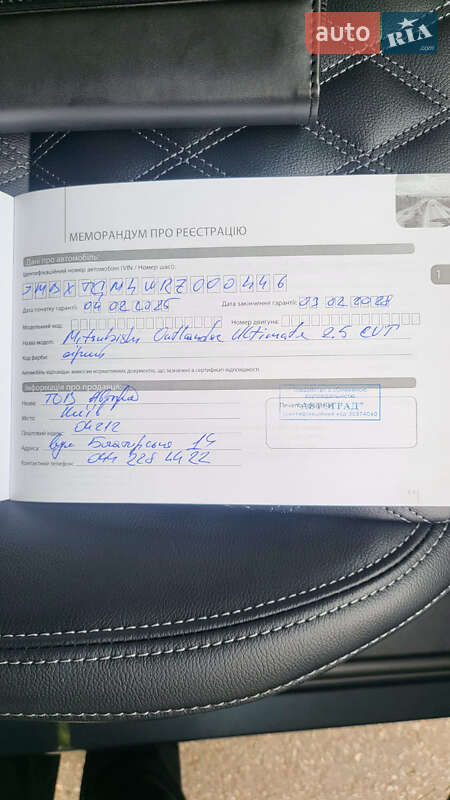 auto RIA .com
МЕМОРАНДУМ ПРО РЕЄСТРАЦІЮ
Дані про автомобіль
Ідентифікаційний номер автомобіля (VIN / Номер шасі):
Дата початку гарантії: 04 02 2025 Дата закінчення гарантії: 03 02 2028
Модельний код: Номер двигуна:
Назва моделі: Mitsubishi Outlander Ultimate 2.5 CVT
Код фарби:
Автомобіль відповідає вимогам нормативних документів, що зазначені в сертифікаті відповідності.
1
Інформація про продавця
Назва: ТОВ
Місто: Київ
Поштовий індекс: 04212
Адреса: вул 14
Контактний телефон: 044 228 4422
"АВТРІГРАД"